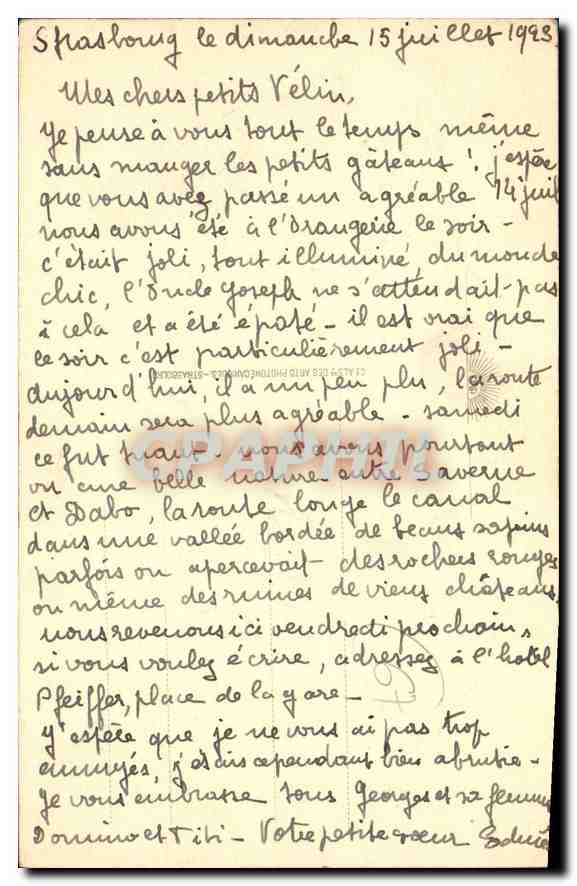 Strasbourg le dimanche 15 juillet 1923.
Mes chers petits Vélin,
Je pense à vous tout le temps même
sans manger les petits gâteaux ! j'espère
que vous avez passé un agréable 14 juil
nous avons été à l'Orangerie le soir -
c'était joli, tout illuminé, du monde
chic, l'Oncle Joseph ne s'attendait pas
à cela et a été épaté - il est vrai que
ce soir c'est particulièrement joli -
CIE ALSNE DES ARTS PHOTOMÉCANIQUES - STRASBOURG
aujourd'hui, il a un peu plu, la route
demain sera plus agréable - samedi
ce fut - nous avons pourtant
CPAPHIL
vu une belle nature entre Saverne
et Dabo, la route longe le canal
dans une vallée bordée de beaux sapins
parfois on apercevait des rochers rouges
ou même des ruines de vieux châteaux,
nous revenons ici vendredi prochain,
si vous voulez écrire, adressez à l'hôtel
Pfeiffer, place de la gare -
J'espère que je ne vous ai pas trop
ennuyés, j'étais cependant bien abrutie -
Je vous embrasse tous Georges et sa femme
Domino et Titi - Votre petite sœur